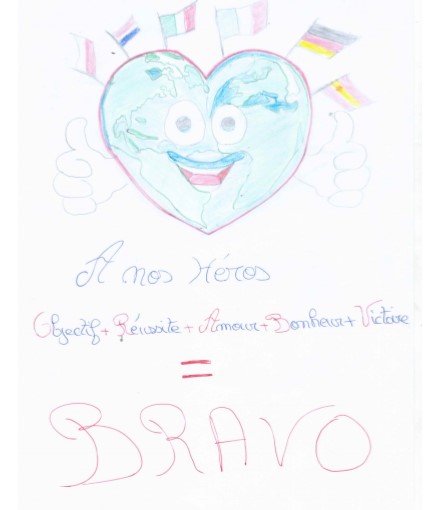 A nos Héros
Objectif + Réussite + Amour + Bonheur + Victoire
=
BRAVO